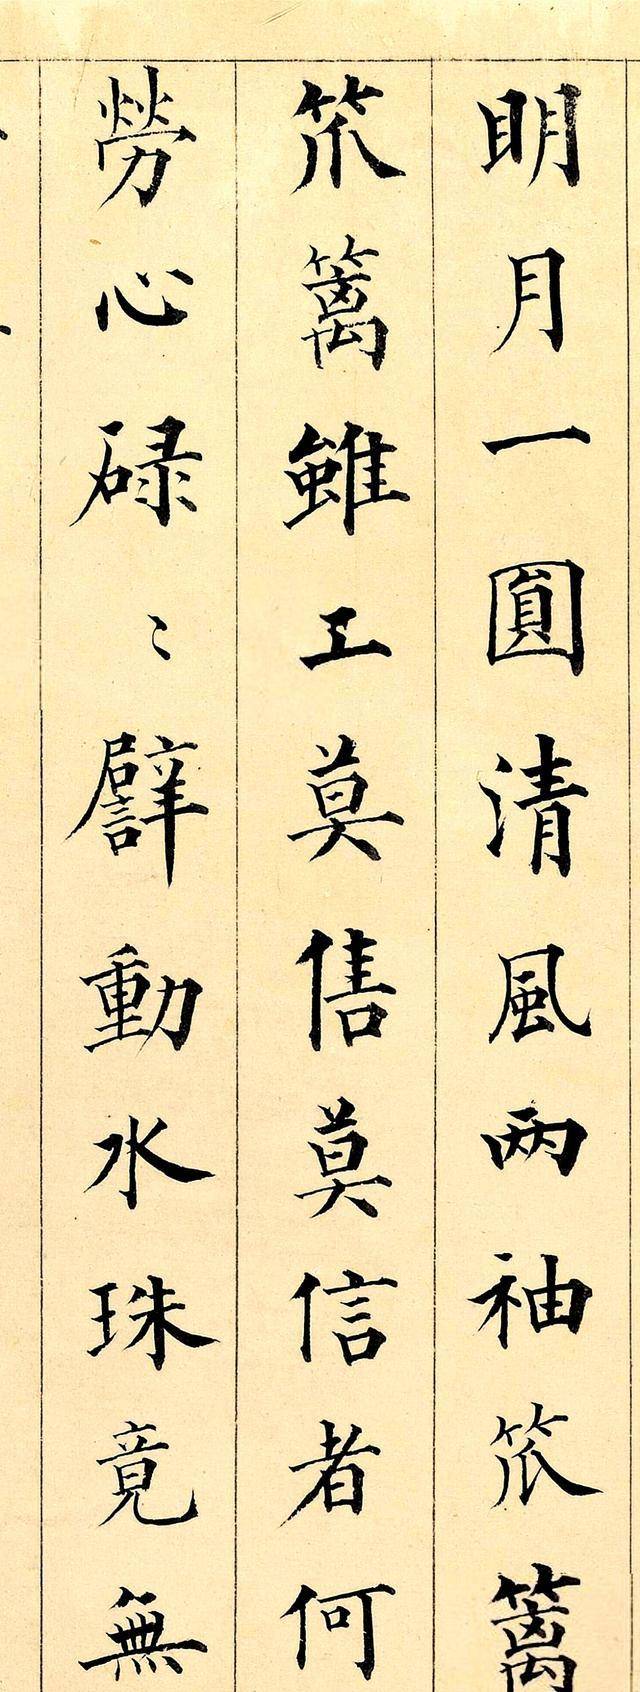 明月一圓清風两袖笊篱
笊篱雖工莫售莫信者何
勞心碌〻譬動水珠竟無